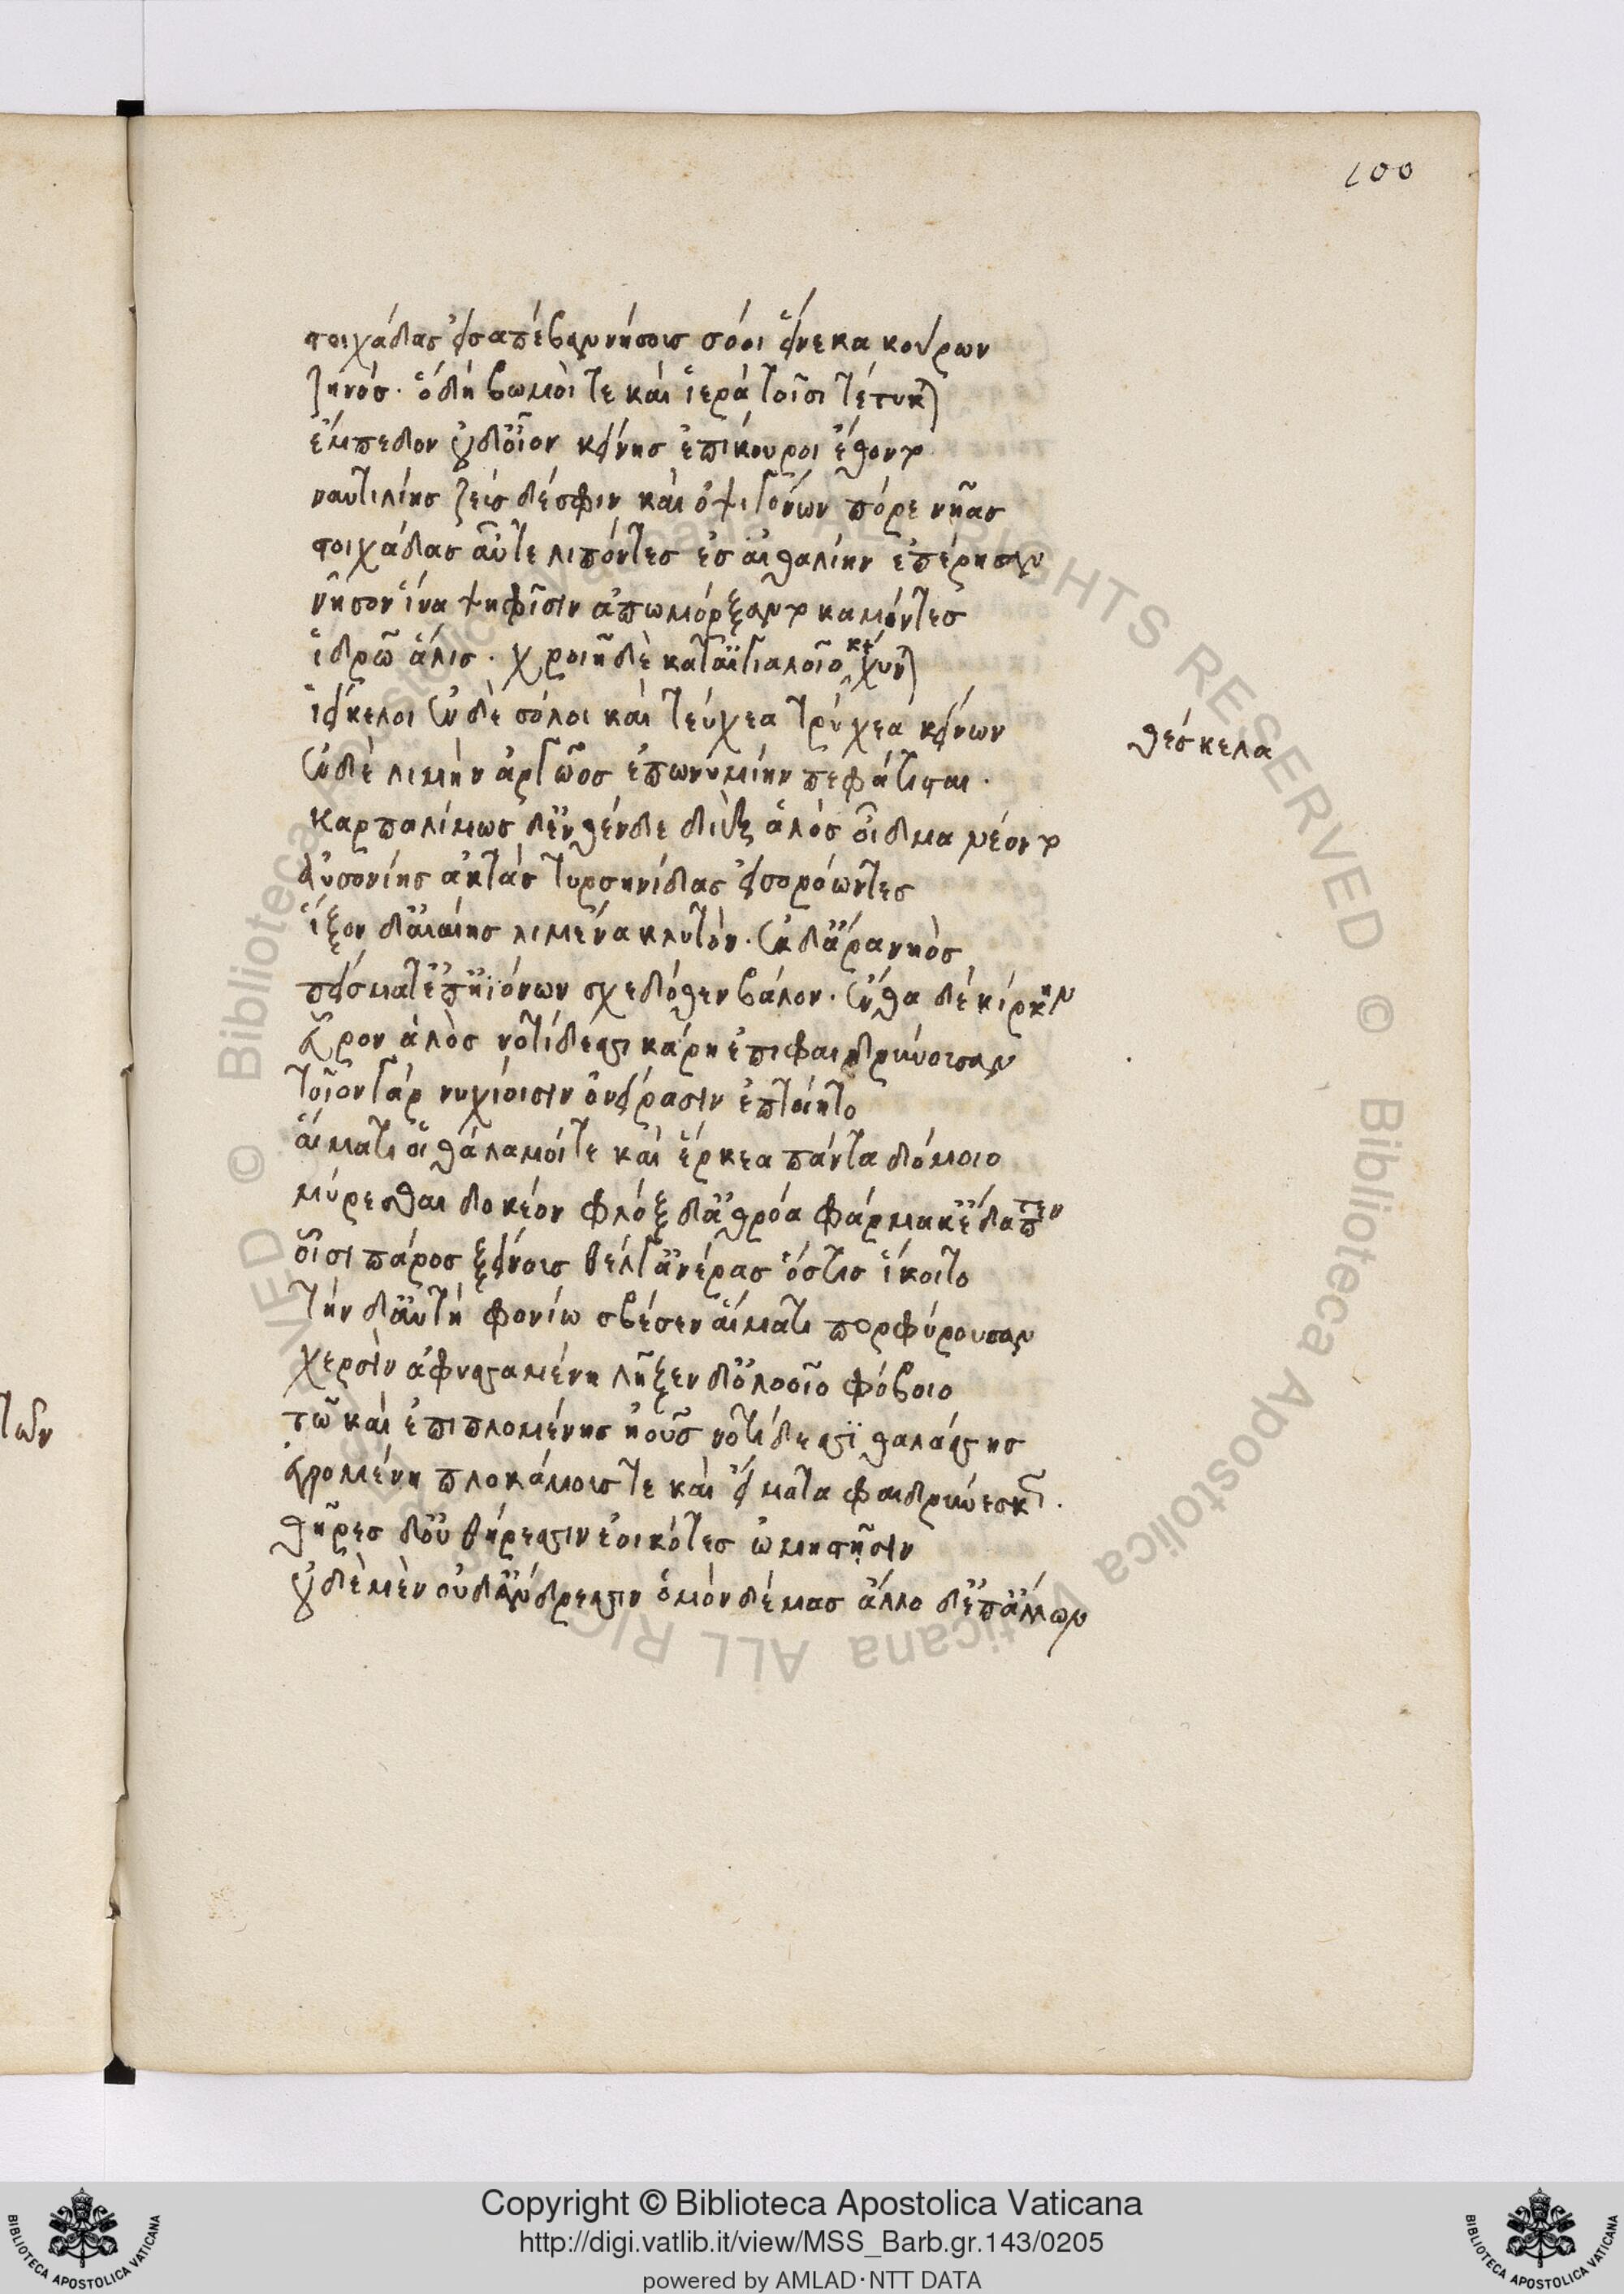 100
στοιχάδας εἰσαπέβαν νήσοις σόοι εἵνεκα κούρων
ζηνός. ὅ δὴ βωμοί τε καὶ ἱερὰ τοῖσι τέτυκται
ἔμπεδον οὐδ' οἷον κείνης ἐπίκουροι ἕθοντο
ναυτιλίης ζεὺς δέ σφιν καὶ ὀψιγόνων πόρε νῆας
στοιχάδας αὖτε λιπόντες ἐς αἰθαλίην ἐπέρησαν
νῆσον ἵνα ψηφῖσιν ἀπωμόρξαντο καμόντες
ἱδρῶ ἅλις. χροιῆ δὲ κατ' αἰγιαλοῖο κέχυνται
ἰείκελοι ἐν δὲ σόλοι καὶ τεύχεα τρύχεα κείνων
θέσκελα
ἐν δὲ λιμὴν ἀργῶος ἐπωνυμίην πεφάτισται.
καρπαλίμως δ' ἐνθένδε διὲξ ἁλὸς οἶδμα νέοντο
αὐσονίης ἀκτὰς τυρσηνίδας εἰσορόωντες
ἷξον δ' αἰαίης λιμένα κλυτόν. ἐκ δ' ἄρα νηὸς
πείσματ' ἐπ' ἠιόνων σχεδόθεν βάλον. ἔνθα δὲ κίρκην
εὗρον ἁλὸς νοτίδεσσι κάρη ἐπιφαιδρύνουσαν
τοῖον γὰρ νυχίοισιν ὀνείρασιν ἐπτοίητο
αἵματι οἱ θάλαμοί τε καὶ ἕρκεα πάντα δόμοιο
μύρεσθαι δοκέον φλὸξ δ' ἀθρόα φάρμακ' ἔδαπτεν
οἷσι πάρος ξείνους θέλγ' ἀνέρας ὅστις ἵκοιτο
τὴν δ' αὐτὴ φονίω σβέσεν αἵματι πορφύρουσαν
χερσὶν ἀφυσσαμένη λῆξεν δ' ὀλοοῖο φόβοιο
τῶ καὶ ἐπιπλομένης ἠοῦς νοτίδεσσι θαλάσσης
ἐγρομένη πλοκάμους τε καὶ εἵματα φαιδρύνεσκε.
θῆρες δ' οὐ θήρεσσιν ἐοικότες ὠμηστῆσιν
οὐδὲ μὲν οὐδ' ἄνδρεσσιν ὁμὸν δέμας ἄλλο δ' ἐπ' ἄλλων
των
Copyright © Biblioteca Apostolica Vaticana
http://digi.vatlib.it/view/MSS_Barb.gr.143/0205
powered by AMLAD·NTT DATA